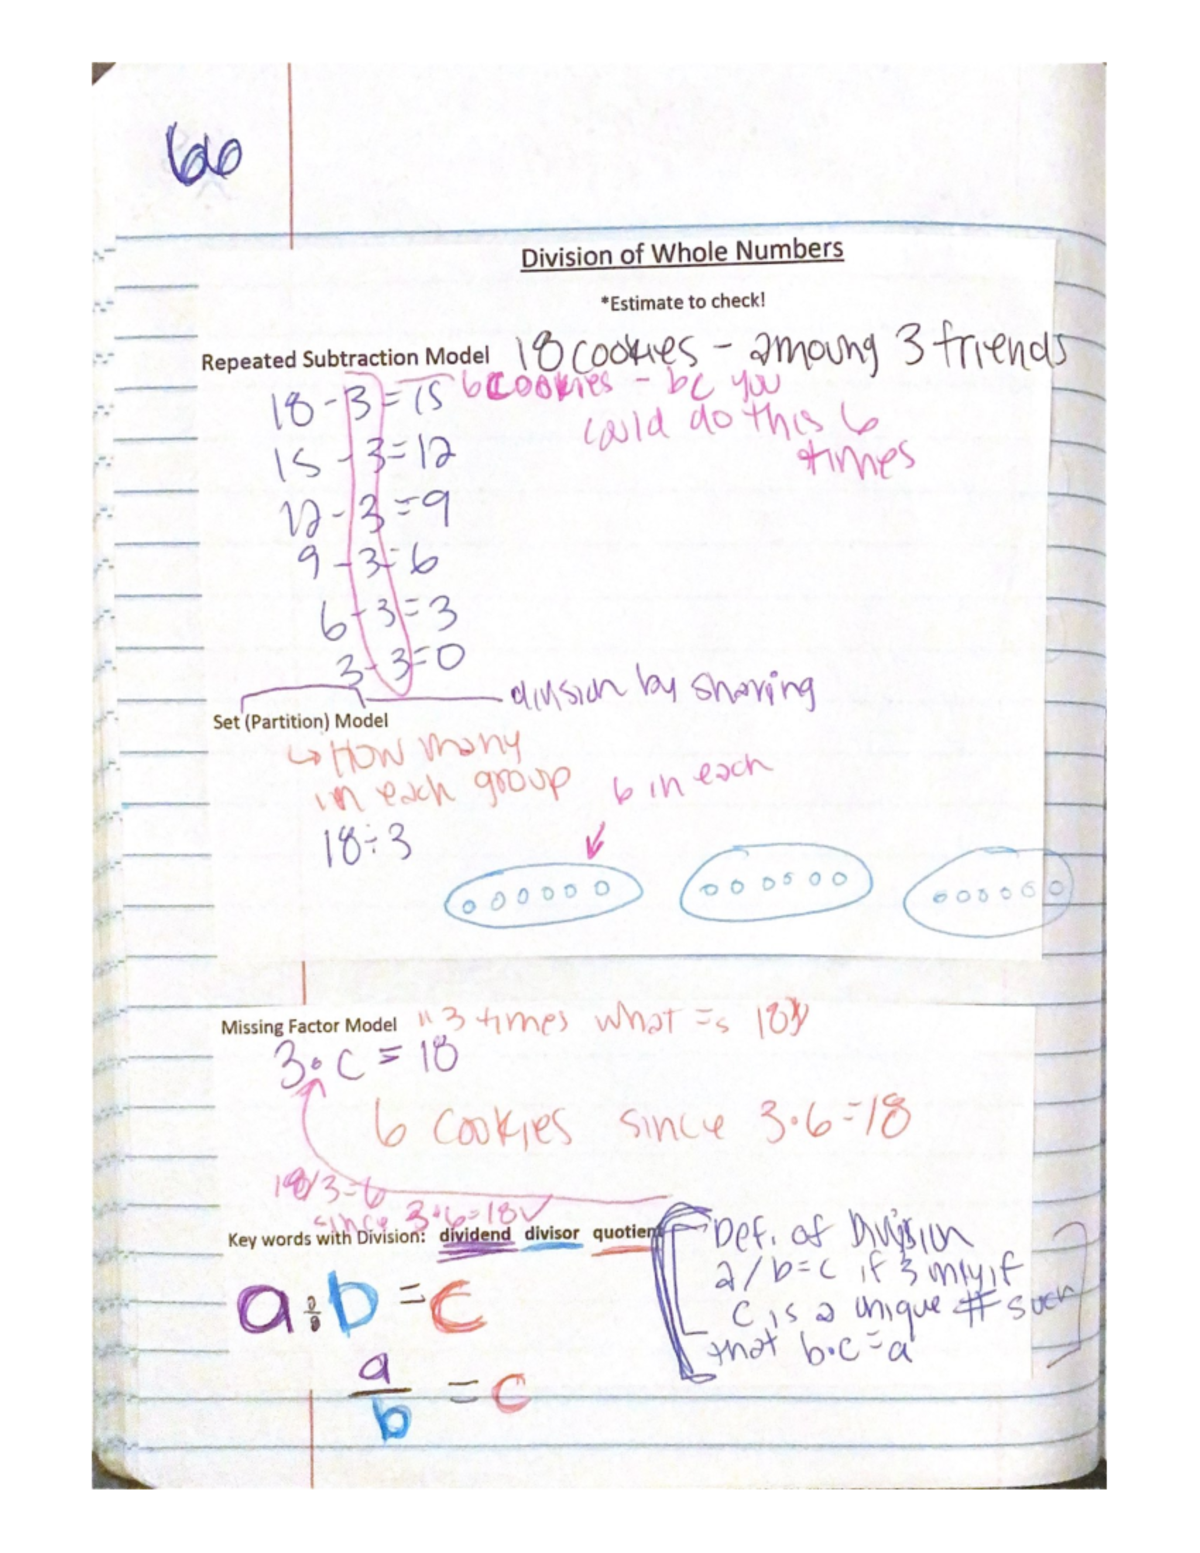 66
Division of Whole Numbers
*Estimate to check!
Repeated Subtraction Model 18 cookies - amoung 3 friends
18-3=15 6 cookies - bc you
could do this 6
times
15-3=12
12-3=9
9-3=6
6-3=3
3-3=0
division by sharing
Set (Partition) Model
↳ How many
in each group
6 in each
18÷3
Missing Factor Model "3 times what =s 18"
3•c=18
6 cookies since 3•6=18
18/3=6
since 3•6=18✓
Key words with Division: dividend divisor quotient
Def. of Division
a/b=c if & only if
c is a unique # such
that b•c=a
a÷b=c
a/b=c